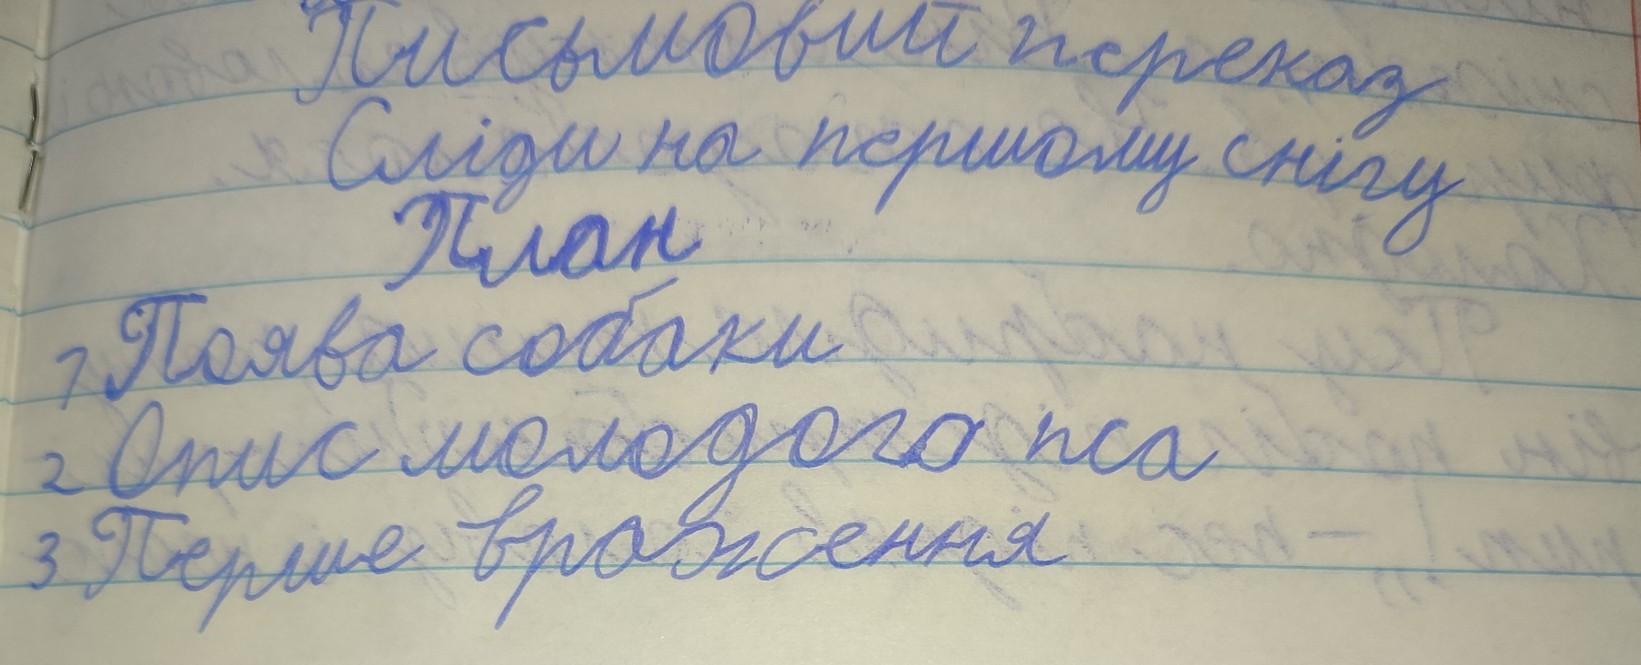 Письмовий переказ
Сліди на першому снігу
План
1 Поява собаки
2 Опис молодого пса
3 Перше враження